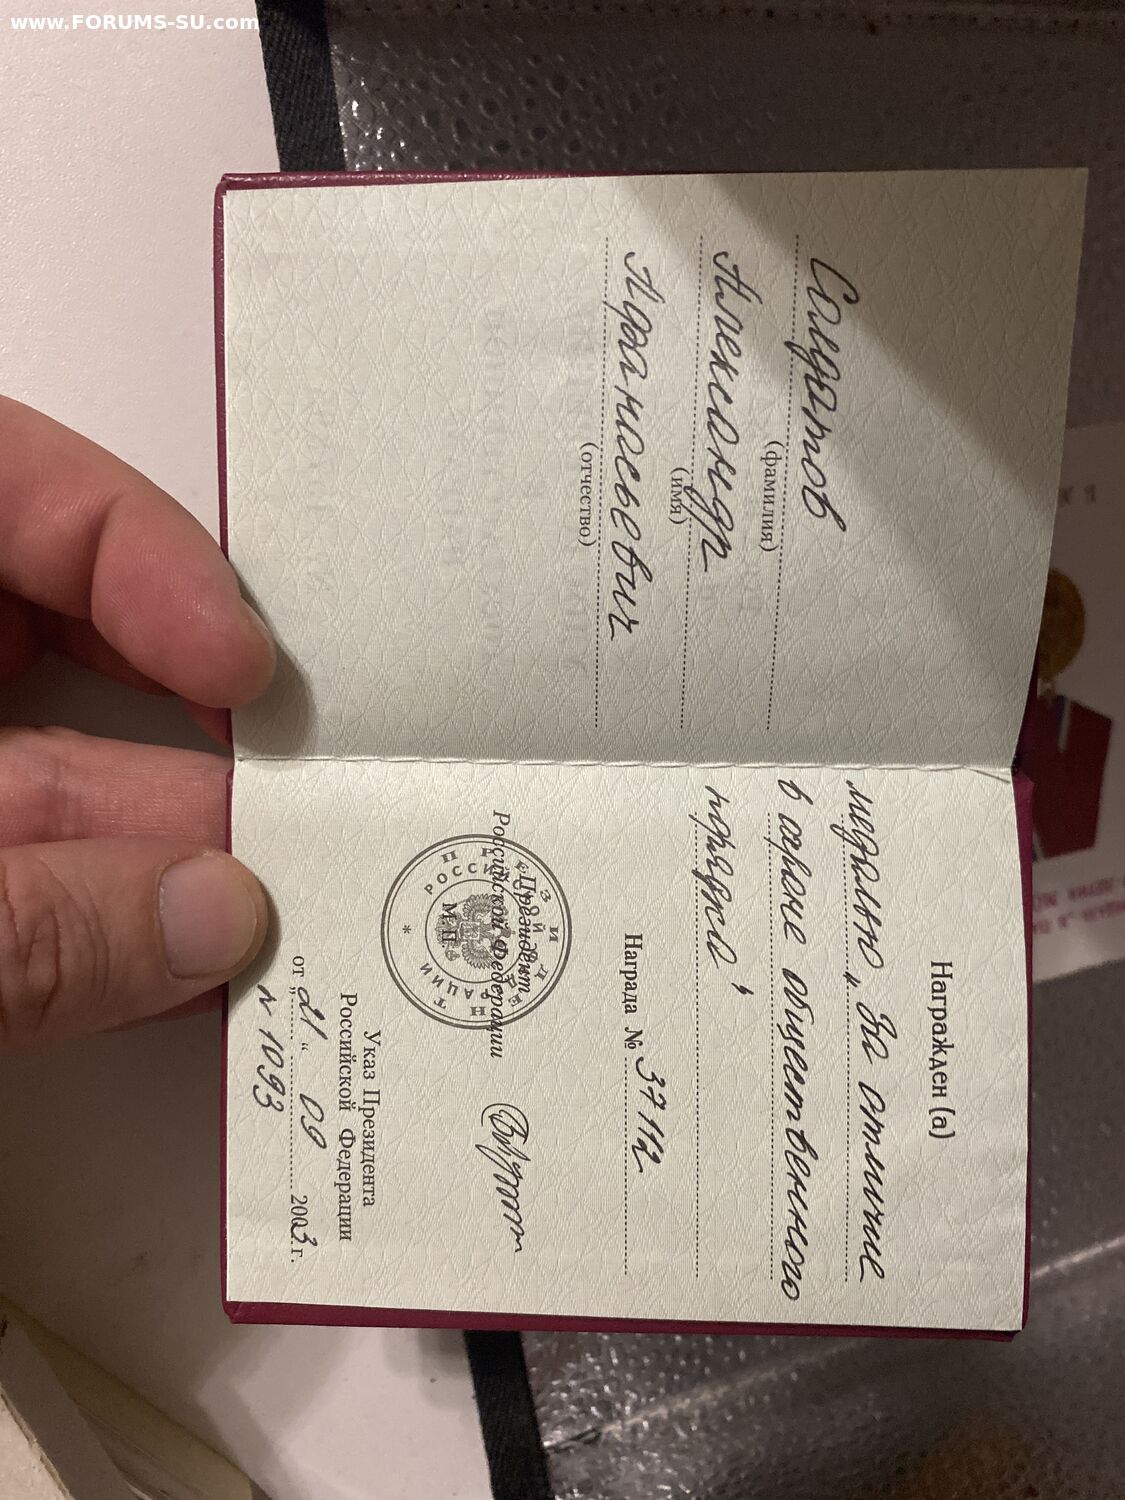 www.FORUMS-SU.com
Солдатов
(фамилия)
Александр
(имя)
Афанасьевич
(отчество)
Награжден (а)
медалью „За отличие
в охране общественного
порядка"
Награда № 37112
Президент
Российской Федерации
М.П.
ПРЕЗИДЕНТ
РОССИЙСКОЙ ФЕДЕРАЦИИ
Указ Президента
Российской Федерации
от „21“ 09 2003 г.
N 1093